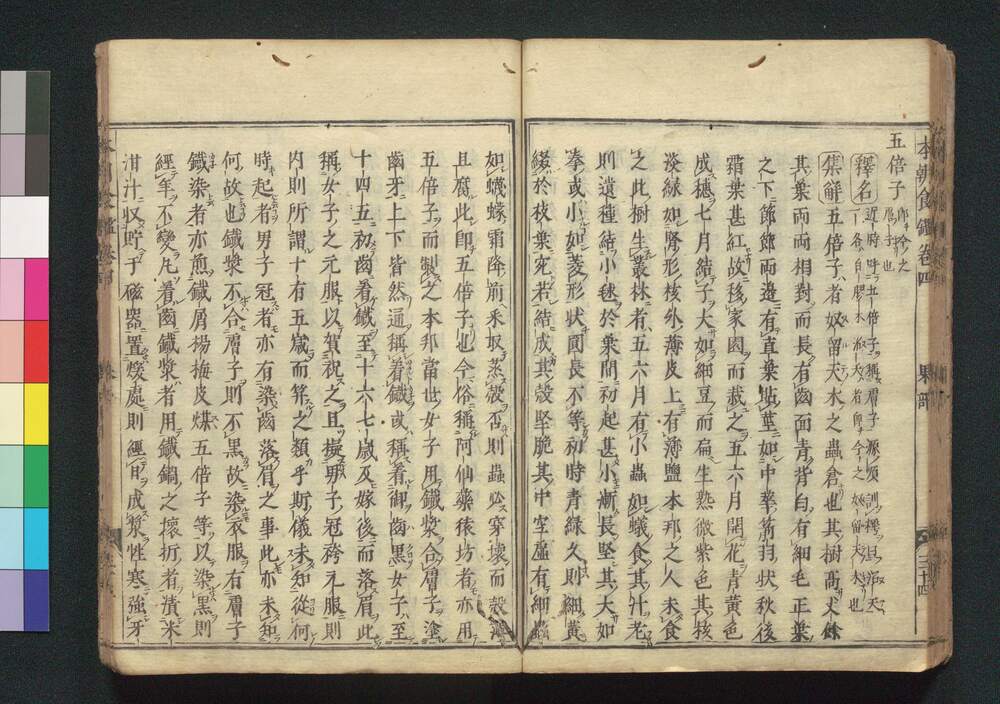 本朝食鑑卷四 果部 三十四
五倍子
釋名
集解五倍子者奴留天木之蟲倉也其樹高丈餘
其葉両両相對而長有齒面青背白有細毛正葉
之下節節両邊有直葉貼莖如中華箭羽狀秋後
霜葉甚紅故移家園而栽之五六月開花青黃色
成穗七月結子大如細豆而扁生熟微紫色其核
淡綠如腎形核外薄皮上有薄鹽本邦之人未食
之此樹生叢林者五六月有小蟲如蟻食其汁老
則遺種結小毬於葉間初起甚小漸長堅其大如
拳或小如菱形狀圓長不等初時青綠久則細黃
綴於枝葉宛若結成其殼堅脆其中空虛有細蟲
如蠛蠓霜降前采取蒸殺否則蟲必穿壞而殼薄
且腐此即五倍子也今俗稱阿仙藥依坊者亦用
五倍子而製之本邦當世女子用鐵漿合層子塗
齒牙上下皆然通稱着鐵或稱着御齒黑女子至
十四五初齒着鐵至十六七歲及嫁後而落眉此
稱女子之元服以賀祝之且擬男子冠袴元服則
内則所謂十有五歲而笄之類乎斯儀未知從何
時起者男子冠者亦有染齒落眉之事此亦未知
何故也鐵漿不合層子則不黑故染衣服有層子
鐵染者亦煎鐵屑楊梅皮煤五倍子等以染黑則
經年不變凡着齒鐵漿者用鐵鍋之壞折者漬米
泔汁収貯于磁器置煖處則經日成漿性寒強牙